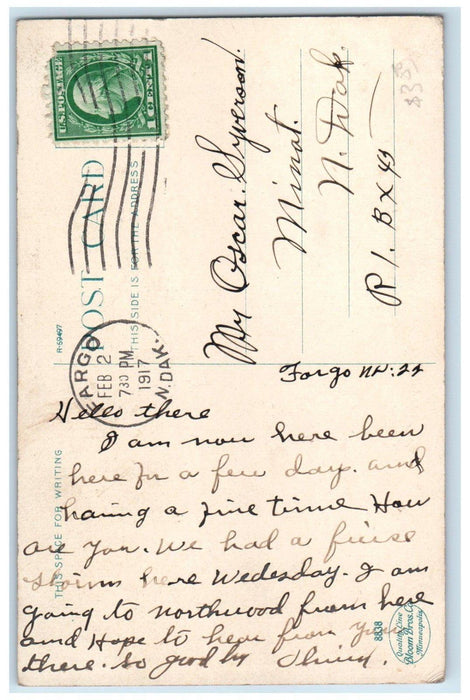 POST CARD
THIS SIDE IS FOR THE ADDRESS
U.S. POSTAGE
1 CENT 1
FARGO
FEB 2
730 PM
1917
N. DAK.
R-59497
$3.85
Mr Oscar Syverson.
Minot.
N. Dak.
R 1. Bx 43
THIS SPACE FOR WRITING
Fargo ND. 24
Hello there
I am now here been
here for a few day. and
having a fine time How
are you. We had a
here Wedesday. I am
going to northwood from here
and Hope to hear from you
there. So good by
8838
Quality Line
Bloom Bros. Co.
Minneapolis